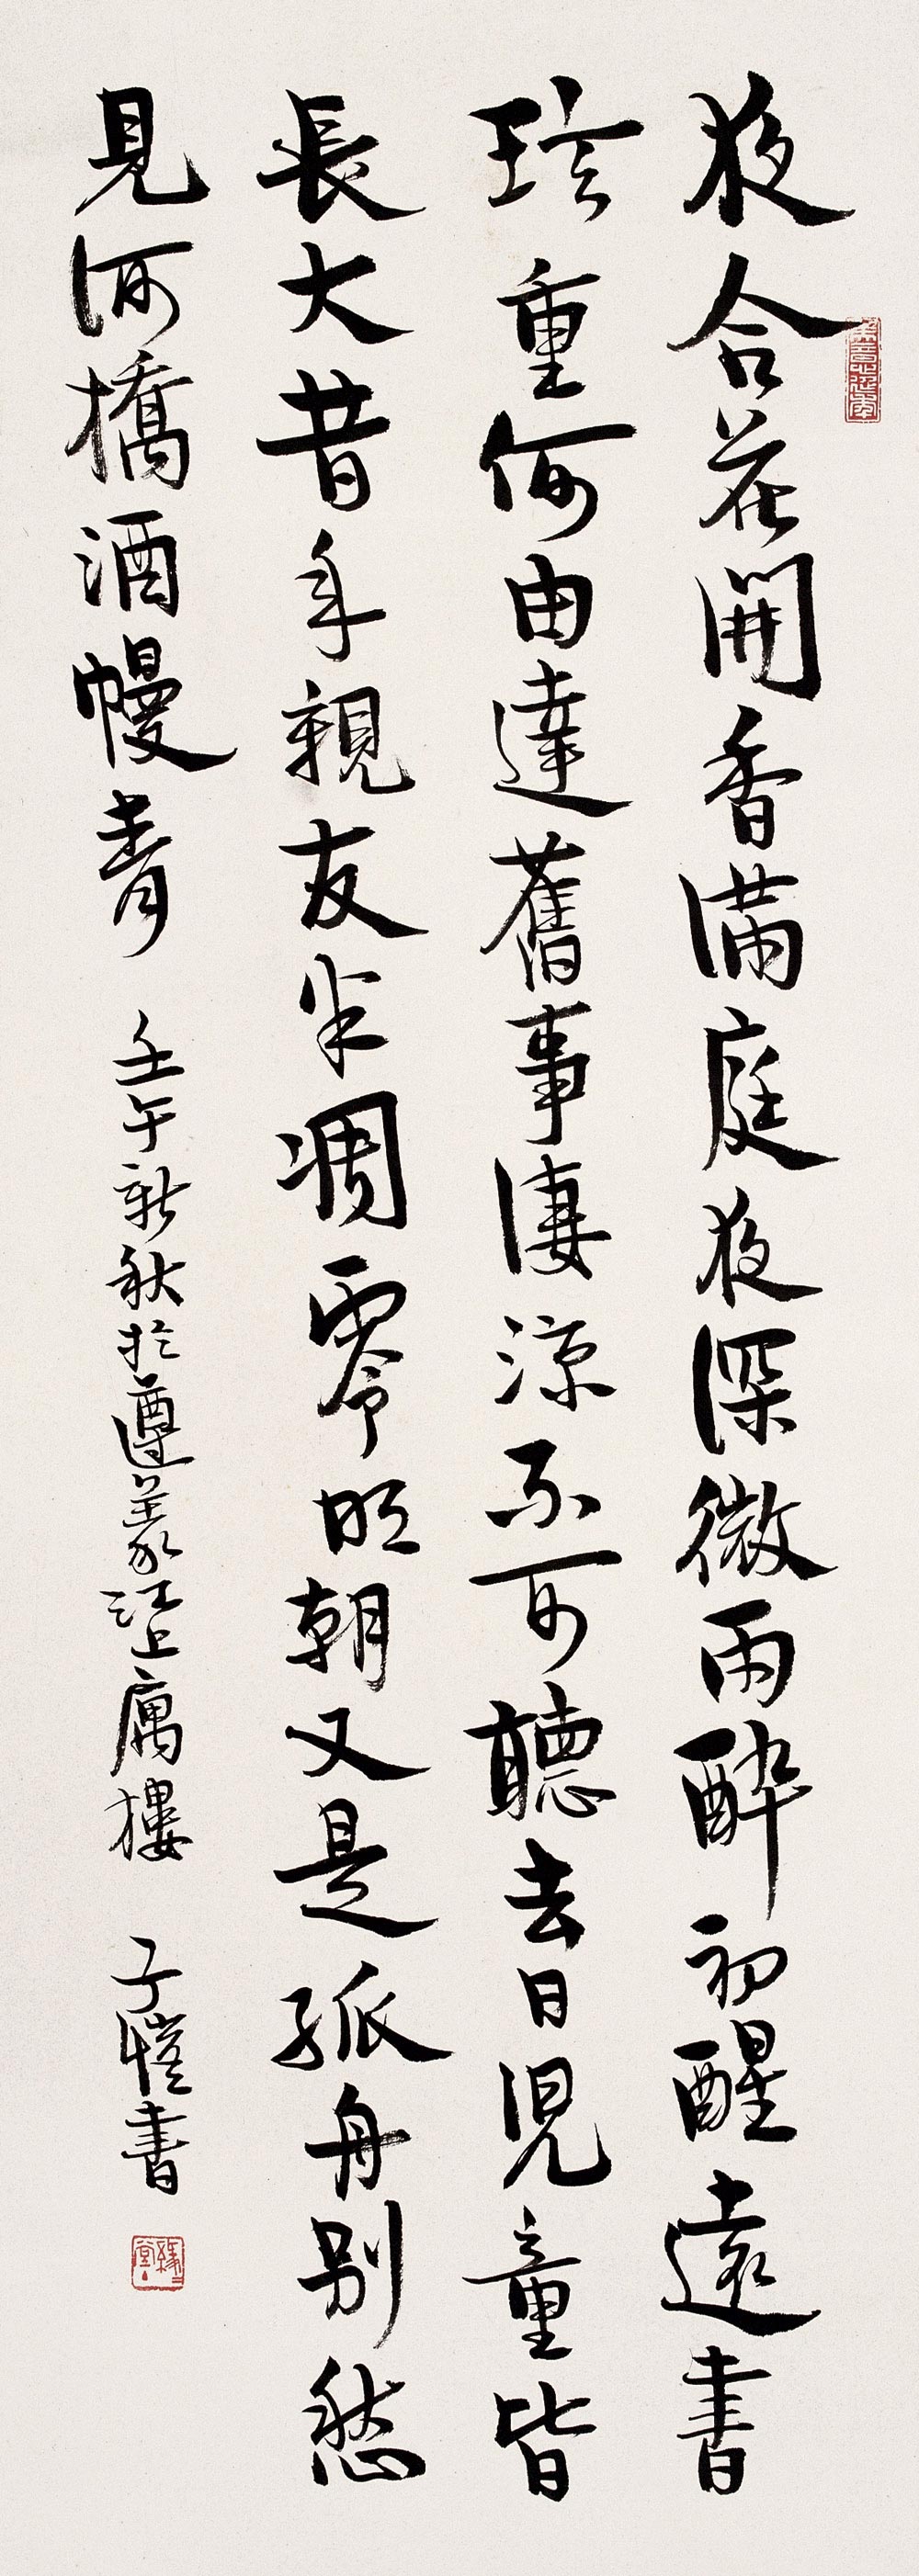 美意延年
夜合花開香滿庭夜深微雨醉初醒遠書
珍重何由達舊事淒涼不可聽去日児童皆
長大昔年親友半凋零明朝又是孤舟別愁
見河橋酒幔青 壬午新秋於遵義江上庽樓 子愷書
緣緣堂